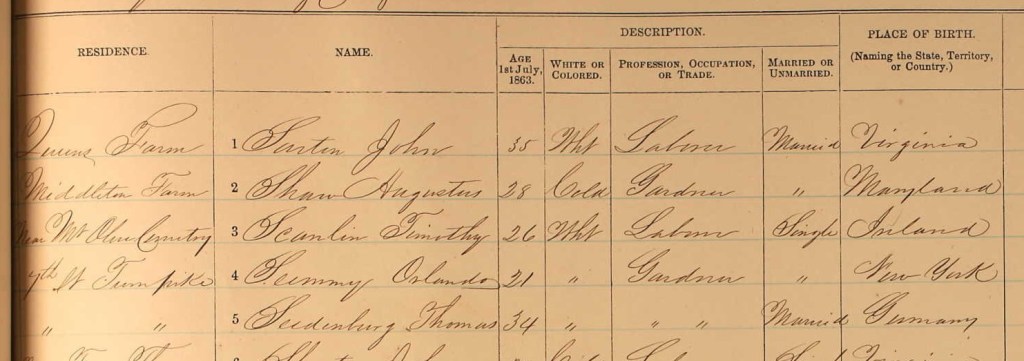 RESIDENCE. NAME. DESCRIPTION. PLACE OF BIRTH.
(Naming the State, Territory, or Country.)
AGE 1st July, 1863. WHITE OR COLORED. PROFESSION, OCCUPATION, OR TRADE. MARRIED OR UNMARRIED.
Queens Farm 1 Sarten John 35 Wht Laborer Married Virginia
Middleton Farm 2 Shaw Augustus 28 Cold Gardner " Maryland
Near Mt Olive Cemetry 3 Scanlin Timothy 26 Wht Laborer Single Ireland
7th St Turnpike 4 Semmy Orlando 21 " Gardner " New York
" " 5 Seedenburg Thomas 34 " " " Married Germany